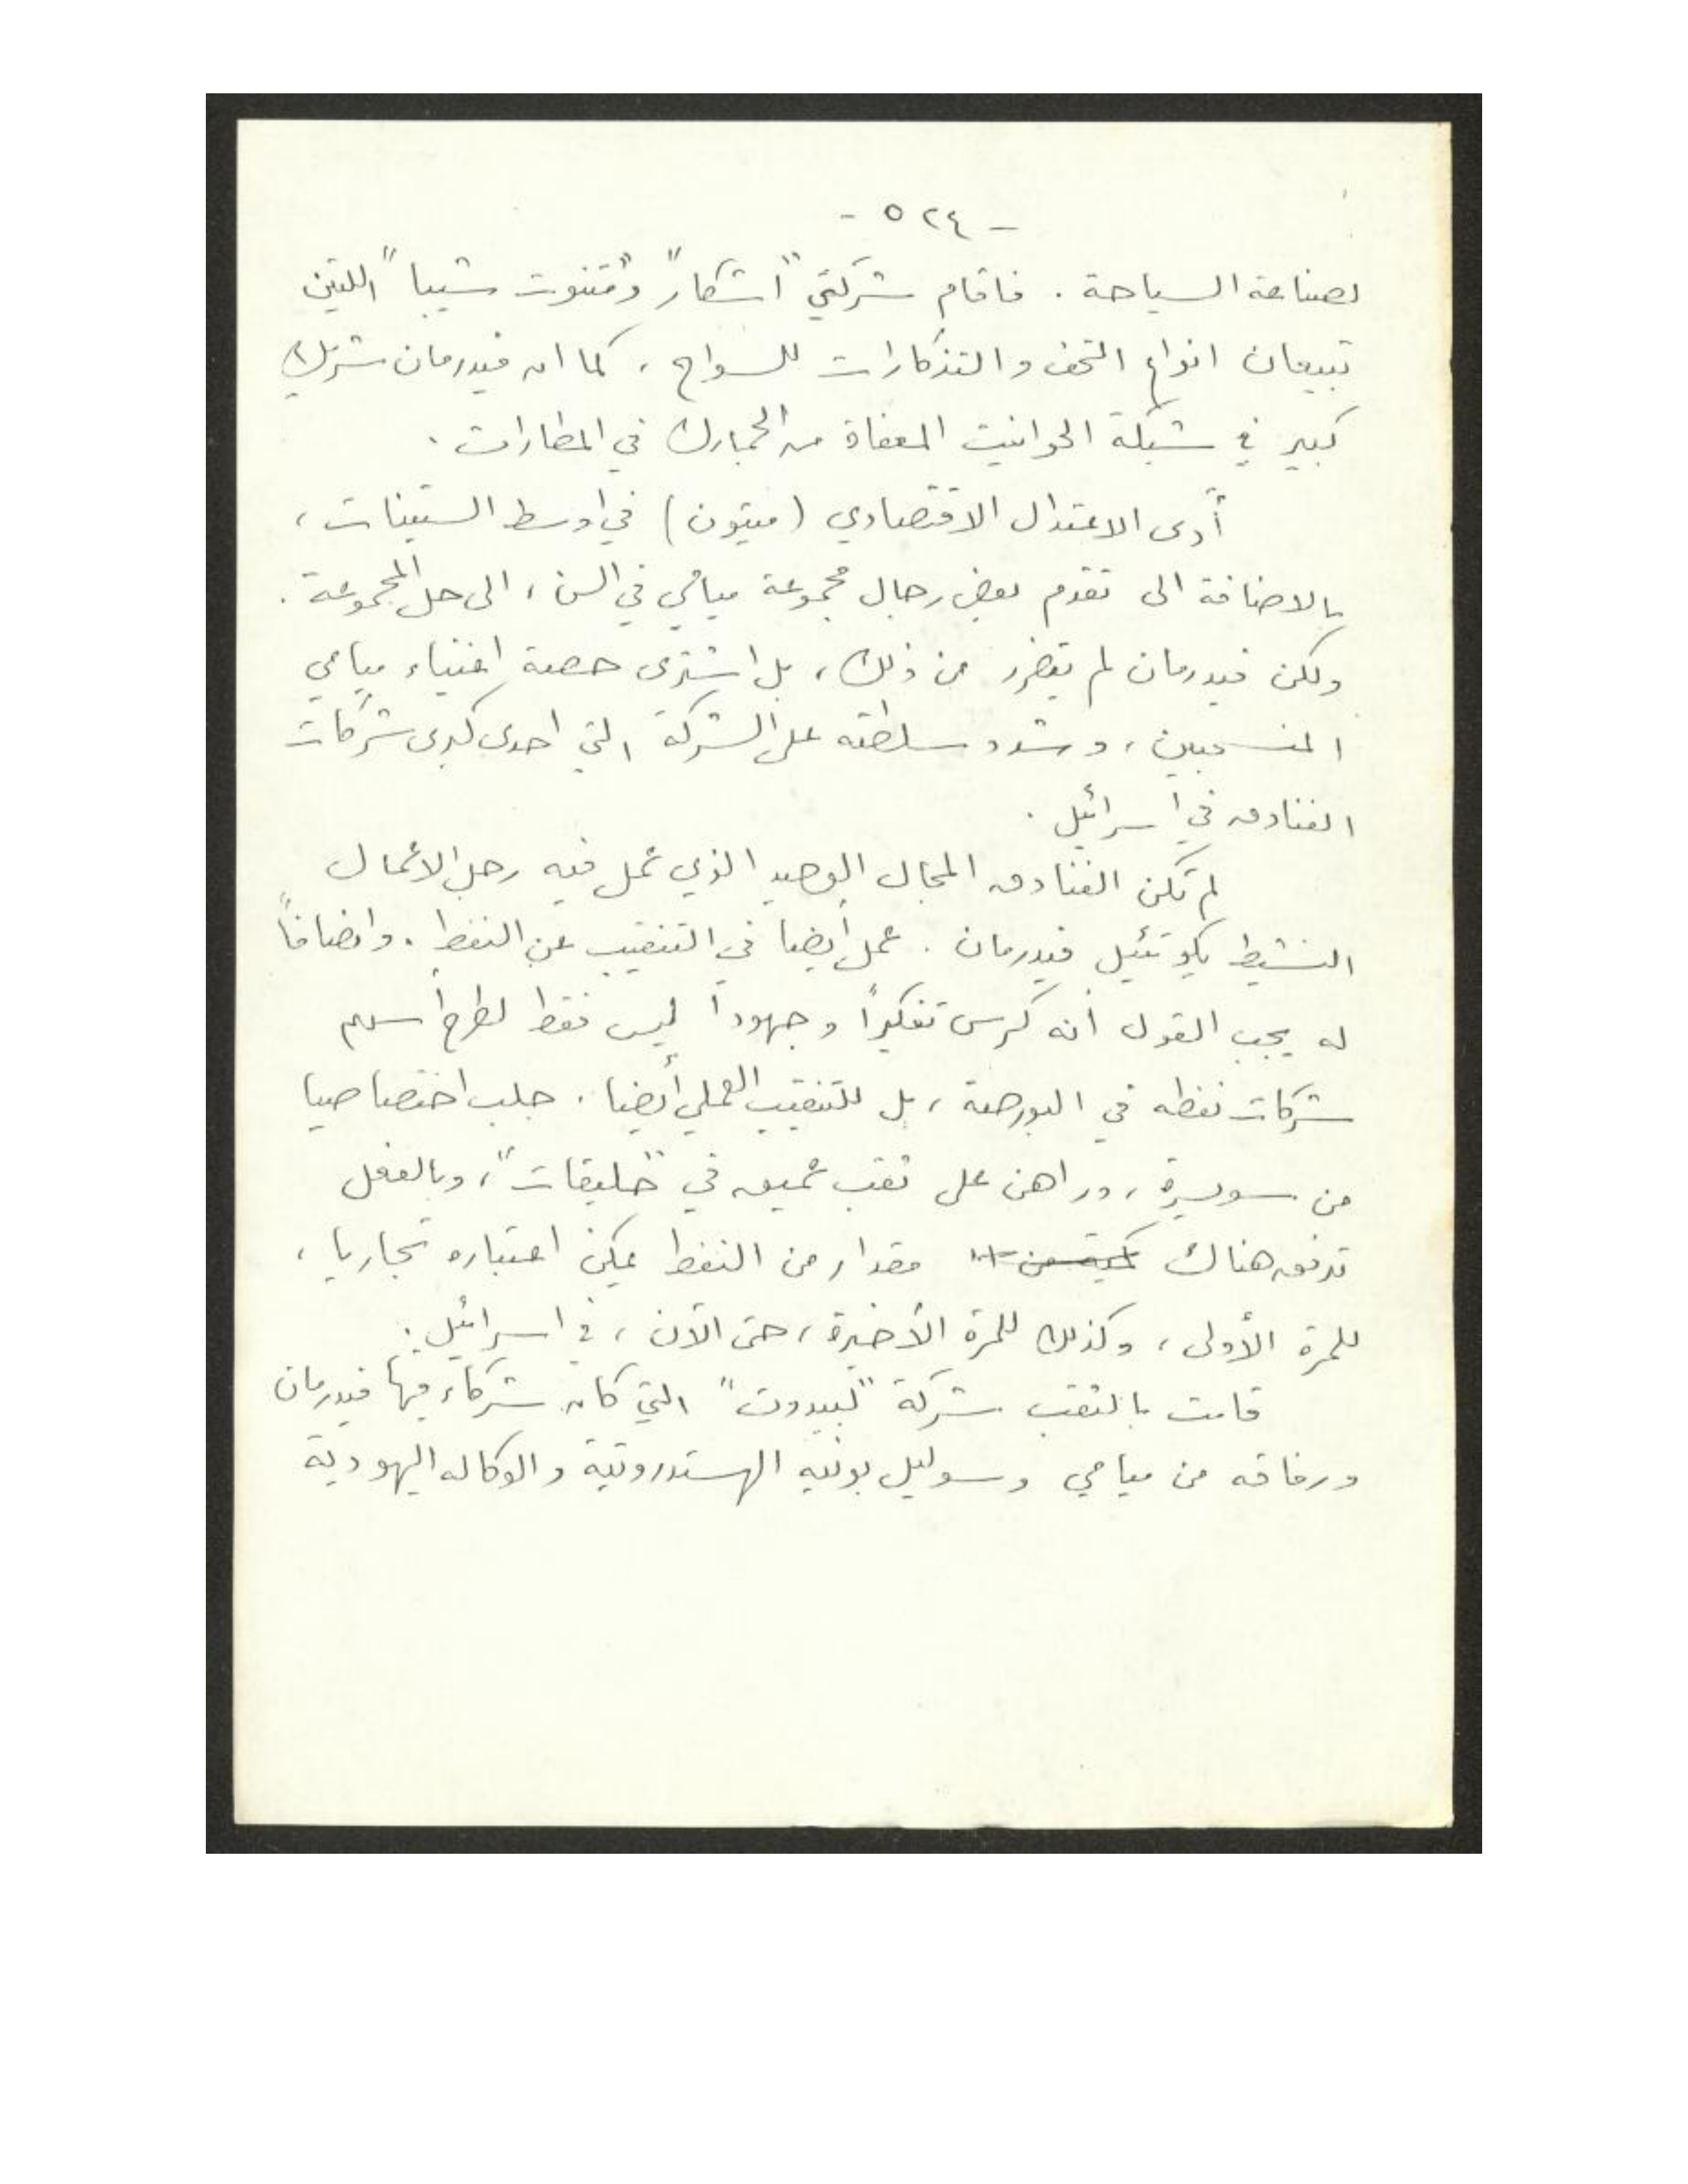 - ٥٢٤ -
لصناعة السياحة . فاقام شركتي "اشكار" و"متنوت شيبا" اللتين
تبيعان انواع التحف والتذكارات للسواح ، كما ان فيدرمان شريك
كبير في شبكة الحوانيت المعفاة من الجمارك في المطارات .
أدى الاعتدال الاقتصادي (ميتون) في اوسط الستينات ،
بالاضافة الى تقدم بعض رجال مجموعة ميامي في السن ، الى حل المجموعة .
ولكن فيدرمان لم يتضرر من ذلك ، بل اشترى حصة اغنياء ميامي
المنسحبين ، وشدد سلطته على الشركة التي احدى كبرى شركات
الفنادق في اسرائيل .
لم تكن الفنادق المجال الوحيد الذي عمل فيه رجل الاعمال
النشيط يكوتئيل فيدرمان . عمل أيضا في التنقيب عن النفط . وانصافاً
له يجب القول أنه كرس تفكيراً وجهوداً ليس فقط لطرح أسهم
شركات نفطه في البورصة ، بل للتنقيب العملي أيضا . جلب اختصاصيا
من سويسرة ، وراهن على ثقب عميق في "حليقات" ، وبالفعل
تدفق هناك كمية من مقدار من النفط يمكن اعتباره تجاريا ،
للمرة الأولى ، وكذلك للمرة الأخيرة ، حتى الآن ، في اسرائيل .
قامت بالثقب شركة "لبيدوت" التي كان شركاء فيها فيدرمان
ورفاقه من ميامي وسوليل بونيه الهستدروتية والوكاله اليهودية